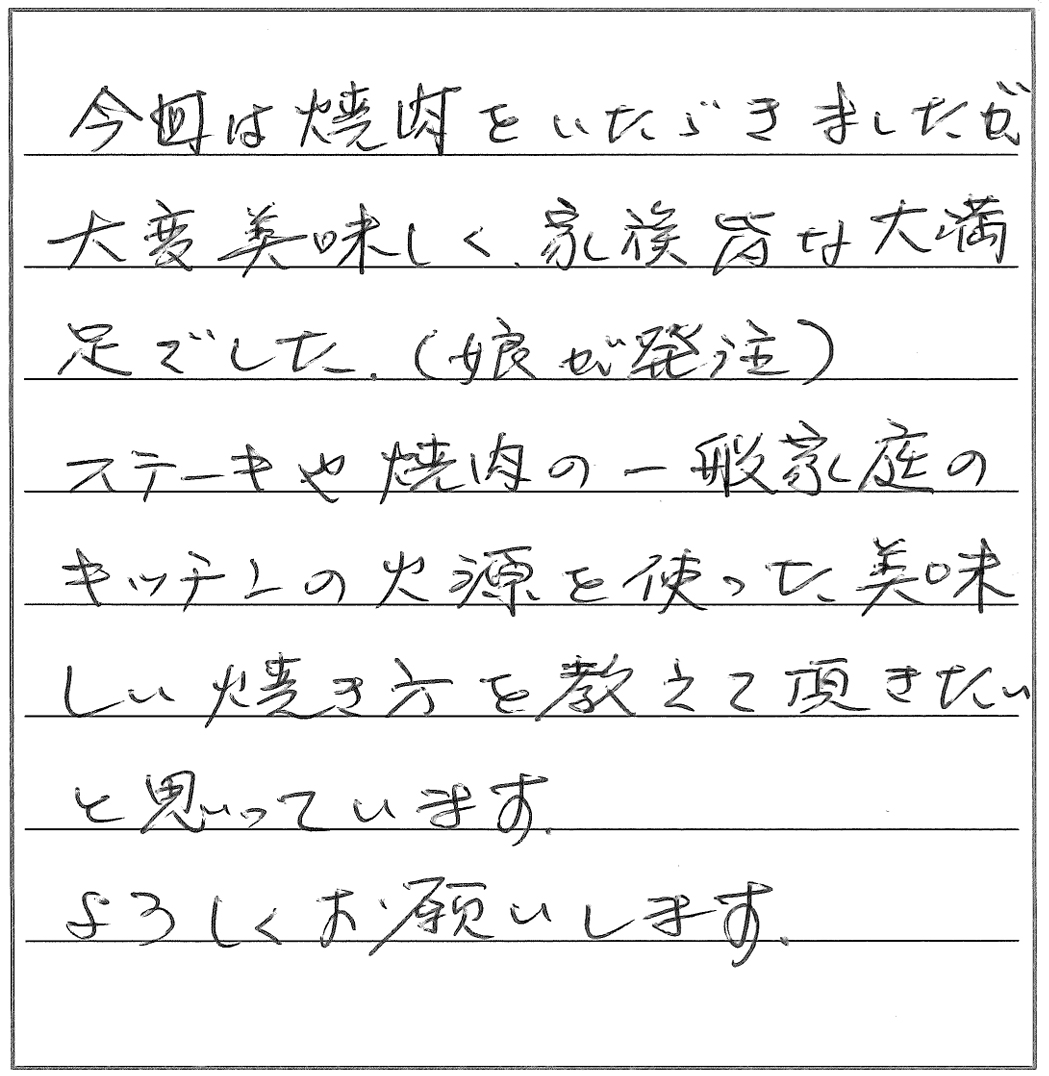 今回は焼肉をいただきましたが
大変美味しく、家族皆な大満
足でした。(娘が発注)
ステーキや焼肉の一般家庭の
キッチンの火源を使った美味
しい焼き方を教えて頂きたい
と思っています。
よろしくお願いします。